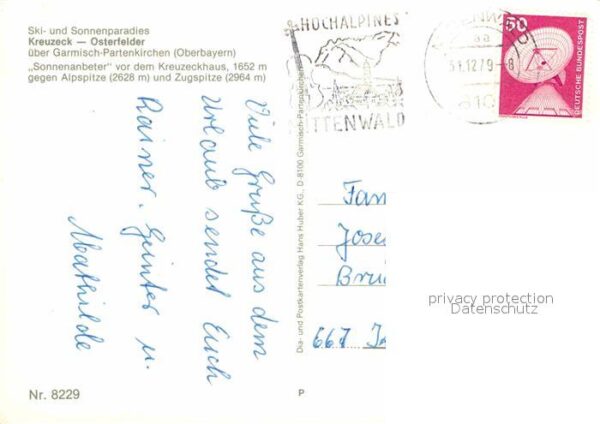 Ski- und Sonnenparadies
Kreuzeck — Osterfelder
über Garmisch-Partenkirchen (Oberbayern)
„Sonnenanbeter" vor dem Kreuzeckhaus, 1652 m
gegen Alpspitze (2628 m) und Zugspitze (2964 m)
HOCHALPINES
MITTENWALD
31.12.79-8
810
50
DEUTSCHE BUNDESPOST
Viele Grüße aus dem
Urlaub sendet Euch
Rainer. Günter u.
Mathilde
Dia- und Postkartenverlag Hans Huber KG., D-8100 Garmisch-Partenkirchen
Fam
Jose
Brü
667
privacy protection
Datenschutz
Nr. 8229
P